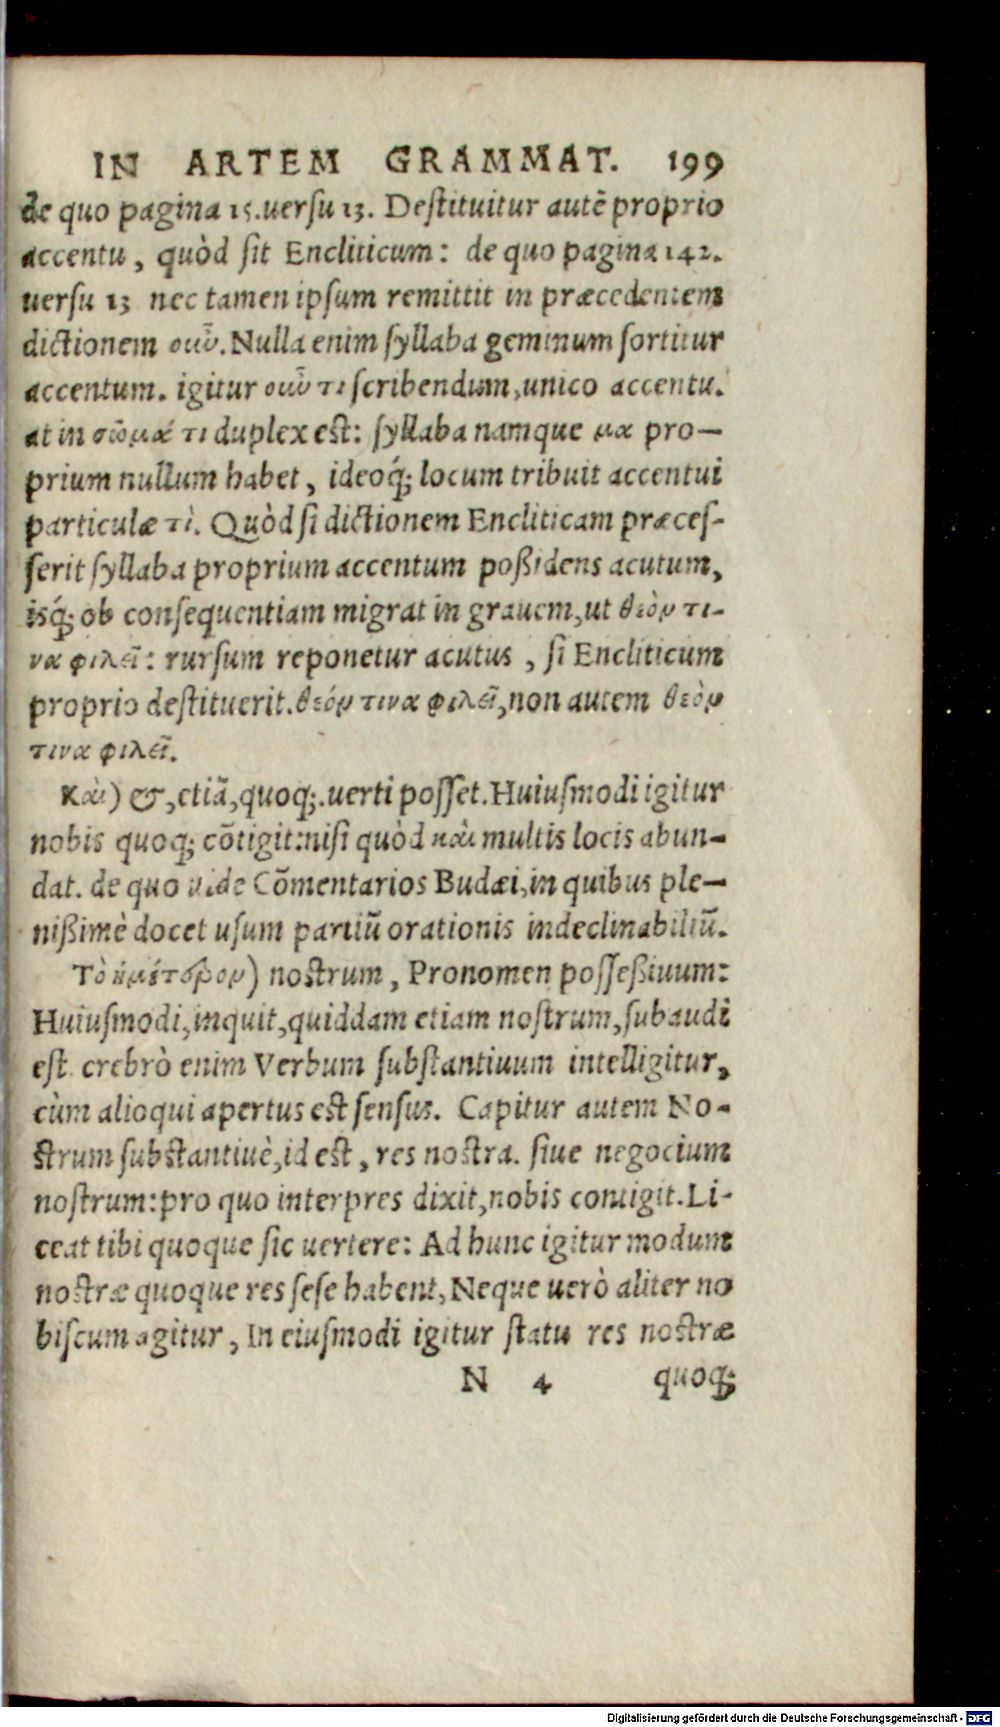 IN ARTEM GRAMMAT. 199
de quo pagina 15. uersu 13. Destituitur autẽ proprio
accentu, quòd sit Encliticum: de quo pagina 142.
uersu 13 nec tamen ipsum remittit in præcedentem
dictionem οὖν. Nulla enim syllaba geminum sortitur
accentum. igitur οὖν τι scribendum, unico accentu.
at in σῶμά τι duplex est: syllaba namque μα pro-
prium nullum habet, ideoq́; locum tribuit accentui
particulæ τὶ. Quòd si dictionem Encliticam præces-
serit syllaba proprium accentum poßidens acutum,
isq́; ob consequentiam migrat in grauem, ut θεὸν τι-
να φιλεῖ: rursum reponetur acutus, si Encliticum
proprio destituerit. θεόν τινα φιλεῖ, non autem θεὸν
τινα φιλεῖ.
Καὶ) &, etiã, quoq;. uerti posset. Huiusmodi igitur
nobis quoq; cõtigit: nisi quòd καὶ multis locis abun-
dat. de quo uide Cõmentarios Budæi, in quibus ple-
nißimè docet usum partiũ orationis indeclinabiliũ.
Τὸ ἡμέτερον) nostrum, Pronomen posseßiuum:
Huiusmodi, inquit, quiddam etiam nostrum, subaudi
est. crebrò enim Verbum substantiuum intelligitur,
cùm alioqui apertus est sensus. Capitur autem No-
strum substantiuè, id est, res nostra. siue negocium
nostrum: pro quo interpres dixit, nobis contigit. Li-
ceat tibi quoque sic uertere: Ad hunc igitur modum
nostræ quoque res sese habent, Neque uerò aliter no
biscum agitur, In eiusmodi igitur statu res nostræ
N 4 quoq;
Digitalisierung gefördert durch die Deutsche Forschungsgemeinschaft - DFG